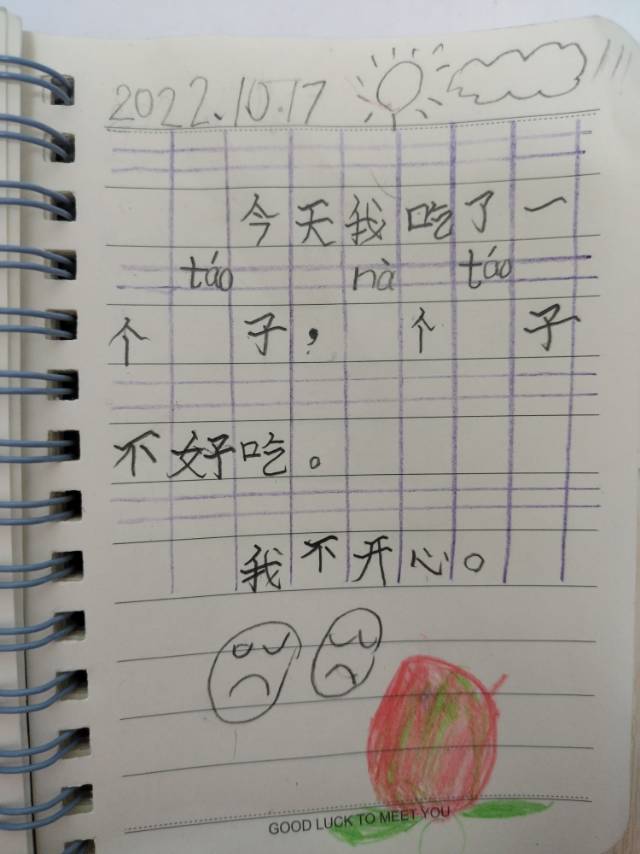 2022.10.17
今天我吃了一
táo nà táo
个 子， 个 子
不好吃。
我不开心。
GOOD LUCK TO MEET YOU